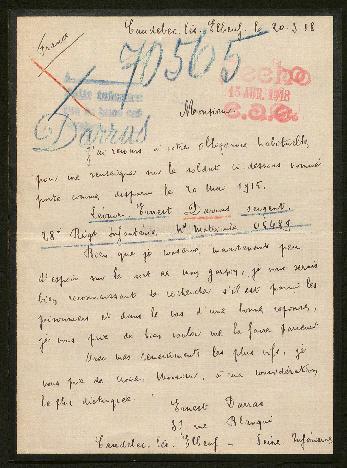 Caudebec-lès-Elbeuf, le 20.3.18
France
70565
Darras
Monsieur
J'ai recours à votre obligeance habituelle,
pour me renseigner sur le soldat ci dessous nommé
porté comme disparu le 20 Mai 1915.
Ernest Darras sergent
28e Régt Infanterie, No matricule
Bien que je conserve, maintenant peu
d'espoir sur le sort de mon garçon, je vous serais
bien reconnaissant de rechercher s'il est parmi les
prisonniers et dans le cas d'une bonne réponse,
je vous prie de bien vouloir me la faire parvenir
Avec mes remerciements les plus vifs, je
vous prie de croire, Monsieur, à ma considération
la plus distinguée.
Ernest Darras
51 rue
Caudebec-lès-Elbeuf - Seine Inférieure